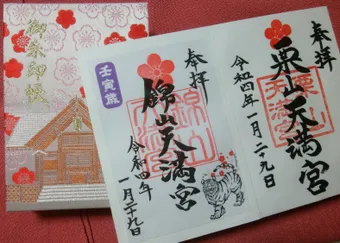 奉拝
栗山天満宮
令和四年一月二十九日
壬寅歳
奉拝
錦山天満宮
令和四年
一月二十九日
御朱印帳